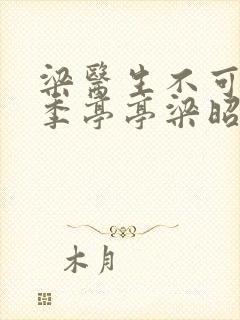 梁醫生不可
季亭亭梁昭
木月